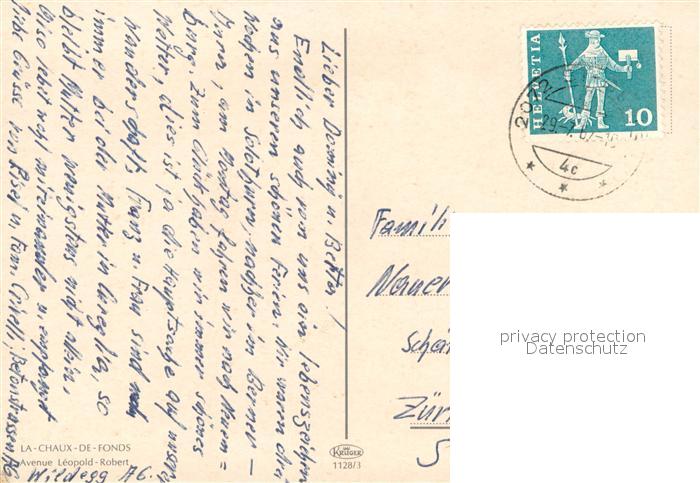 Lieber Domini u Bethli!
Endlich auch von uns ein Lebenszeichen
aus unseren schönen Ferien. Wir waren drei
Wochen in Solothurn, nachher im Berner –
Jura, am Montag fuhren wir nach Neuen=
burg. Zum Glück haben wir immer schönes
Wetter, dies ist ja die Hauptsache auf unserer
Wanderschaft. Franz u. Frau sind
immer bei der Mutter in, so
bleibt Mutter wenigstens nicht allein,
Also lebt wohl miteinander u empfangt
liebe Grüsse von Rösli u Fam.
Wildegg AG.
LA-CHAUX-DE-FONDS
Avenue Léopold-Robert
KRÜGER
1128/3
HELVETIA
10
29.-7.67-
4c
Famili
Zür
privacy protection
Datenschutz